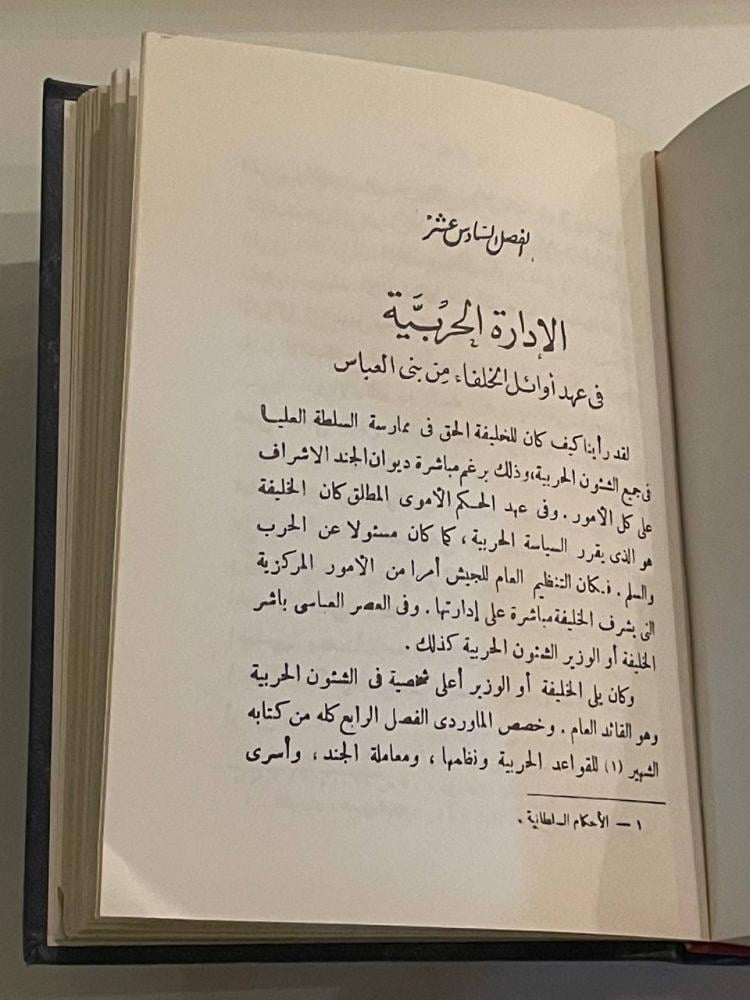 الفصل السادس عشر
الإدارة الحربية
فى عهد أوائل الخلفاء من بنى العباس
لقد رأينا كيف كان للخليفة الحق فى ممارسة السلطة العليا
فى جميع الشئون الحربية، وذلك برغم مباشرة ديوان الجند الاشراف
على كل الأمور . وفى عهد الحكم الأموى المطلق كان الخليفة
هو الذى يقرر السياسة الحربية ، كما كان مسئولا عن الحرب
والسلم . فكان التنظيم العام للجيش أمرا من الأمور المركزية
التى يشرف الخليفة مباشرة على إدارتها . وفى العصر العباسى باشر
الخليفة أو الوزير الشئون الحربية كذلك .
وكان يلى الخليفة أو الوزير أعلى شخصية فى الشئون الحربية
وهو القائد العام . وخصص الماوردى الفصل الرابع كله من كتابه
الشهير (١) للقواعد الحربية ونظامها ، ومعاملة الجند ، وأسرى
١ — الأحكام السلطانية .